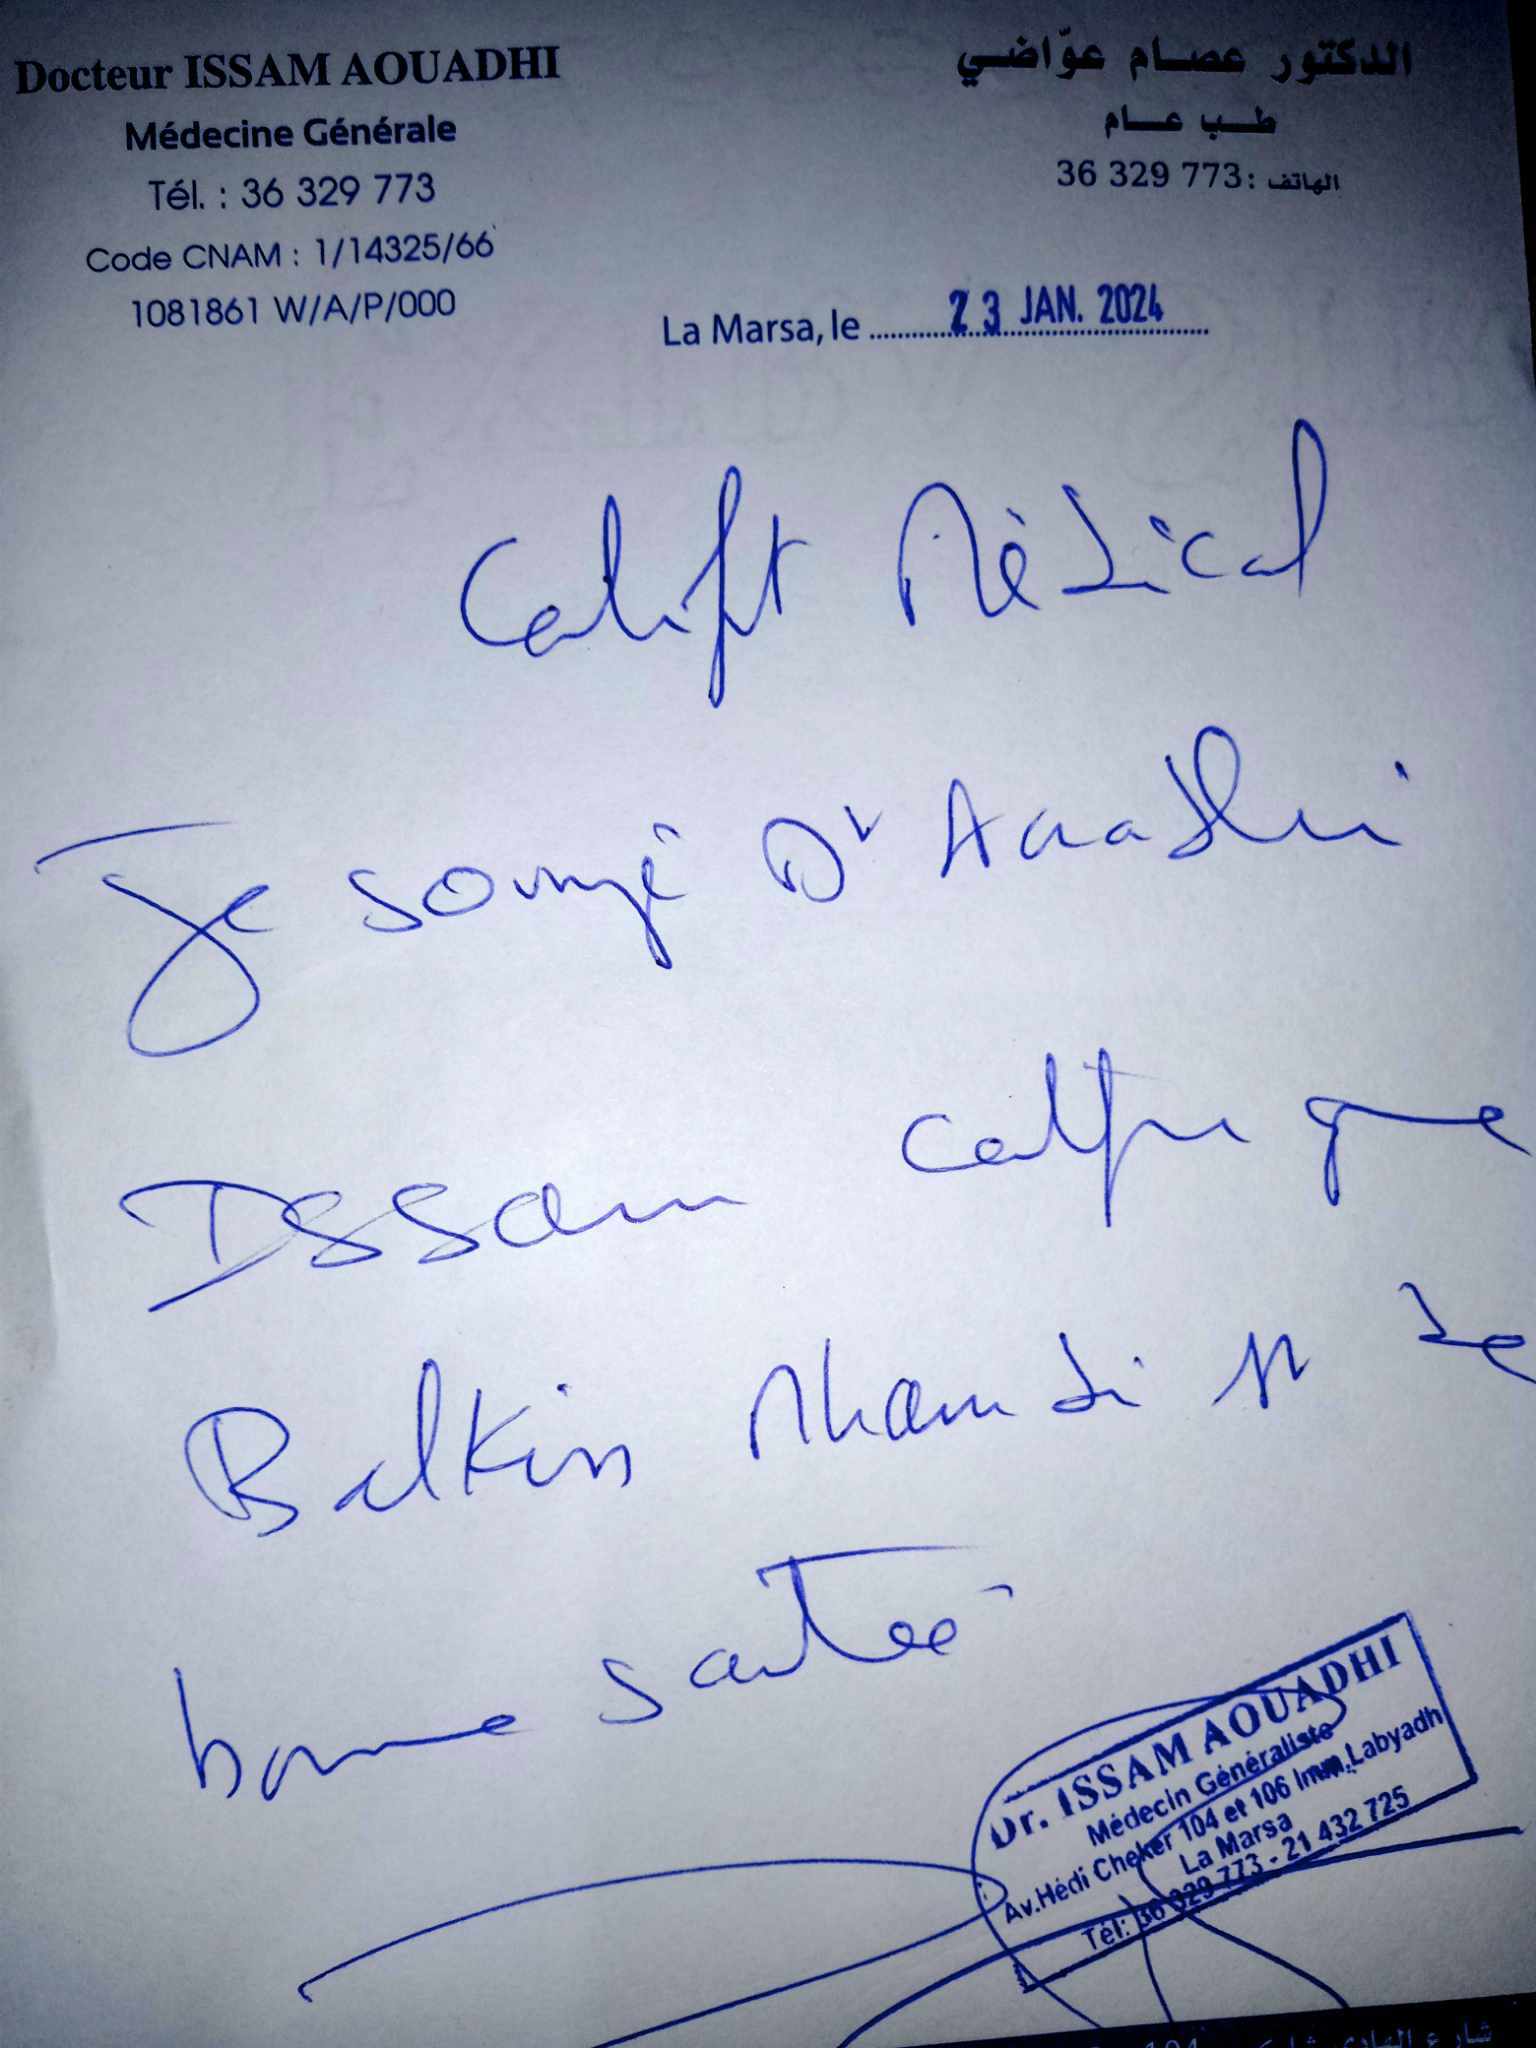 Docteur ISSAM AOUADHI
Médecine Générale
Tél. : 36 329 773
Code CNAM : 1/14325/66
1081861 W/A/P/000
الدكتور عصام عوّاضي
طب عام
الهاتف : 773 329 36
La Marsa, le 23 JAN. 2024
Certift Médical
Je soussigné Dr Aouadhi
Issam certifie que
Balkiss Mhamdi st de
bonne santeé
Dr. ISSAM AOUADHI
Médecin Généraliste
Av.Hédi Cheker 104 et 106 Imm.Labyadh
La Marsa
Tél: 36 329 773 - 21 432 725
شارع الهادي